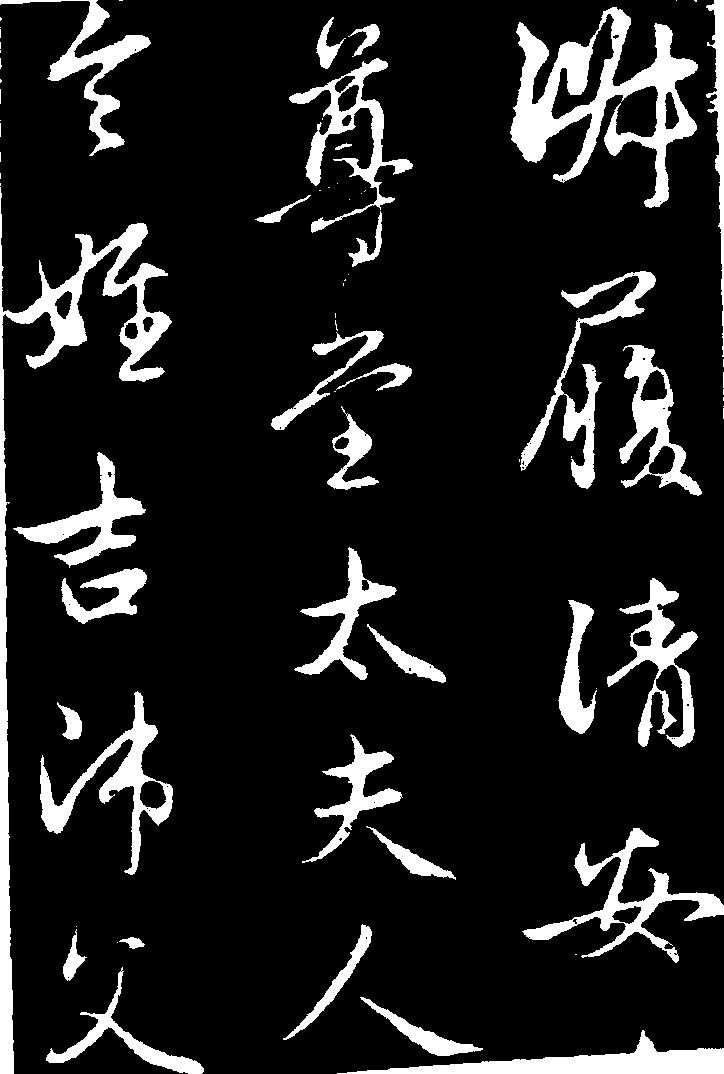 履清安
尊堂太夫人
令姪吉沛父